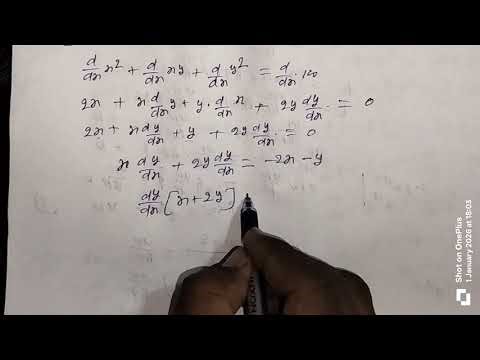 d/dx x² + d/dx xy + d/dx y² = d/dx · 100
2x + x d/dx y + y · d/dx x + 2y dy/dx · = 0
2x + x dy/dx + y + 2y dy/dx · = 0
x dy/dx + 2y dy/dx = -2x - y
dy/dx [x + 2y]
Shot on OnePlus
1 January 2026 at 18:03